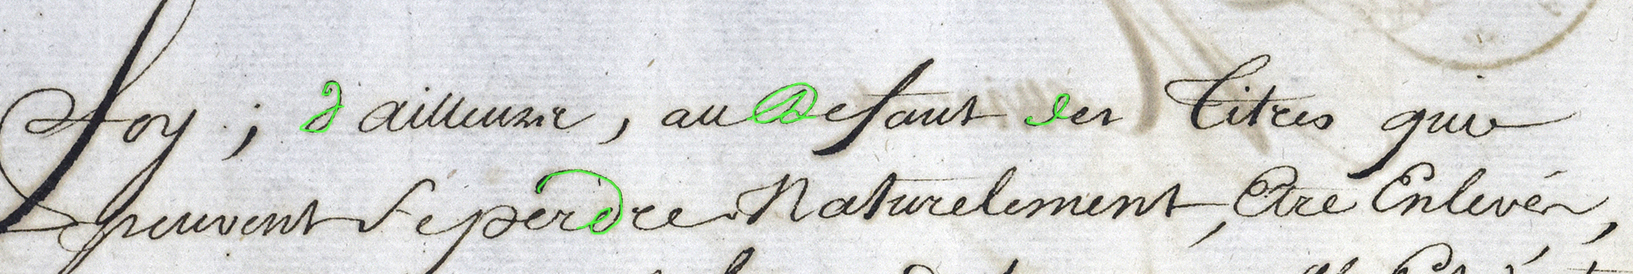 foy ; d'ailleurs, au Defaut des Titres qui
peuvent se perdre Naturelement, Etre Enlevés,